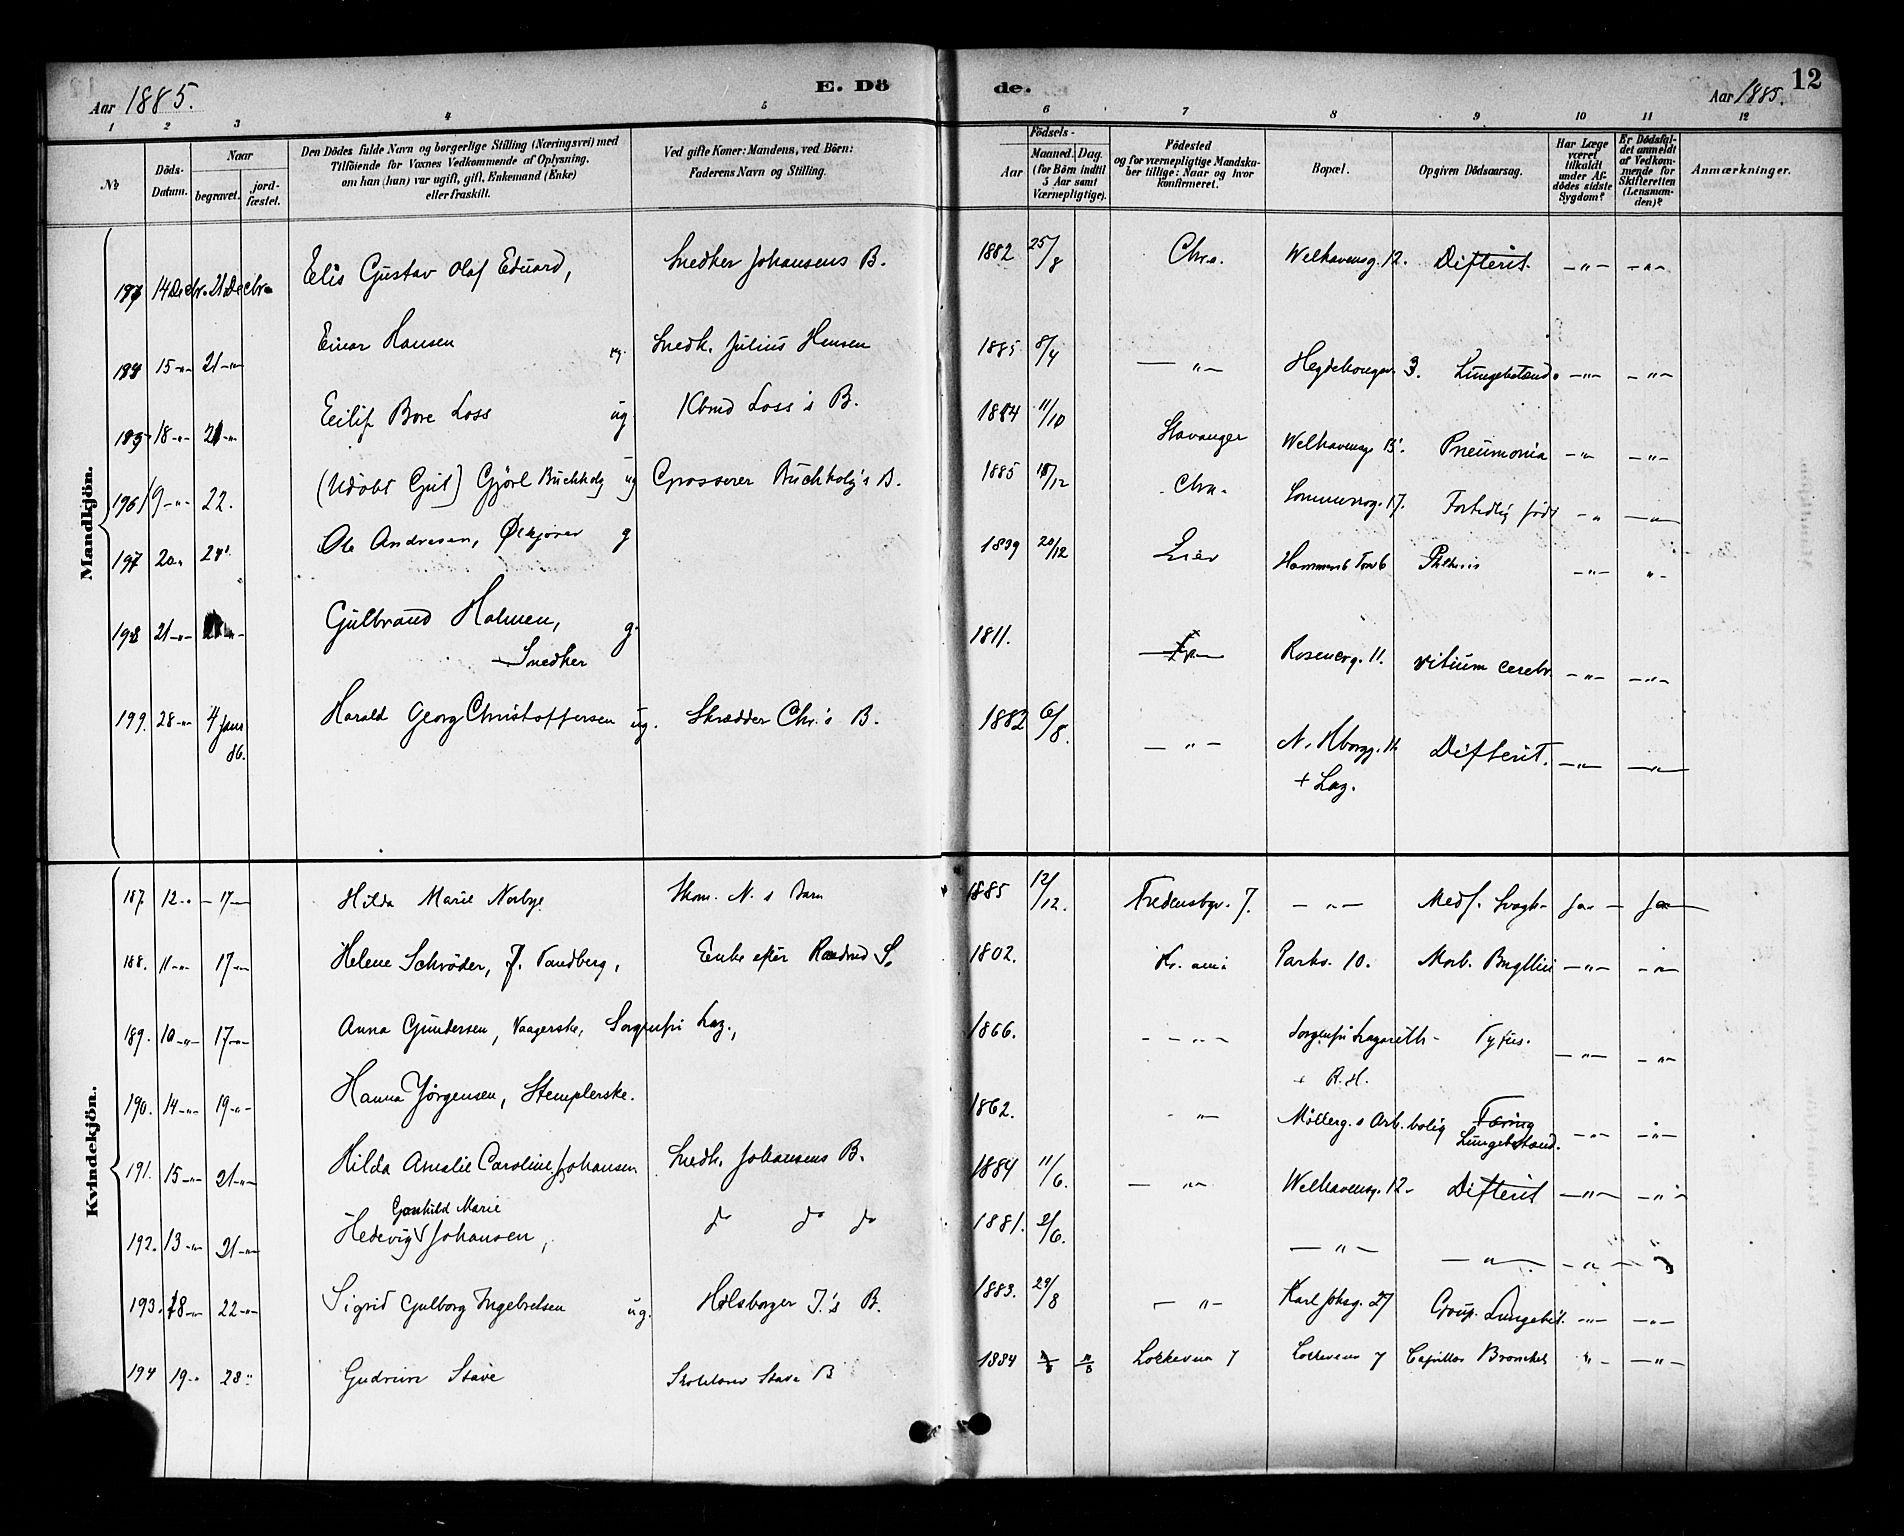 Aar 1885.
E. Dö
de.
Aar 1885.
12
1 2 3 4 5 6 7 8 9 10 11 12
№
Döds-Datum.
Naar
begravet.
jord-fæstet.
Den Dödes fulde Navn og borgerlige Stilling (Næringsvei) med
Tilföiende for Voxnes Vedkommende af Oplysning,
om han (hun) var ugift, gift, Enkemand (Enke)
eller fraskilt.
Ved gifte Koner: Mandens, ved Börn:
Faderens Navn og Stilling.
Födsels-
Aar
Maaned. Dag.
(for Börn indtil
5 Aar samt
Værnepligtige).
Födested
og for værnepligtige Mandska-
ber tillige: Naar og hvor
konfirmeret.
Bopæl.
Opgiven Dödsaarsag.
Har Læge
været
tilkaldt
under Af-
dödes sidste
Sygdom?
Er Dödsfal-
det anmeldt
af Vedkom-
mende for
Skifteretten
(Lensman-
den)?
Anmærkninger.
Mandkjön.
14 Decbr. 21 Decbr. Elis Gustav Olaf Eduard, Snedker Johansens B. 1882 25/8 Chra. Welhavensg. 12. Difterit. -"- -"-
15 -"- 21 -"- Einar Hansen ug. Snedk. Julius Hansen 1885 8/4 -"- Hegdehougsv. 3. Lungebetænd. -"- -"-
18 -"- 21 -"- Eilif Bore Loss ug. Loss's B. 1884 11/10 Stavanger Welhavensg Pneumonia -"- -"-
196 19 -"- 22. (Udöbt Gut) Gjörl Buchholz ug Grosserer Buchholz's B. 1885 /12 Chra. Sommerrog. 17. Fortidlig födt -"- -"-
197 20 " Ole Andresen, g 1839 20/12 Lier Phthisis -"- "-
198 21 -"- Gulbrand Holmen, g. 1811. Rosencrg. 11. vitium cerebr. -"- -"-
Snedker
199. 28 -"- 4 Janr Harald Georg Christoffersen ug. Skrædder Chr.'s B. 1882 6/8. -"- Difterit. -"- -"-
86. + Laz.
Kvindekjön.
187. 12 -"- 17 -"- Hilda Marie Norbye Skom. N.s Barn 1885 12/12. Fredensbgv. 7. -"- Medf. Svagh. Ja - Ja
188. 11 -"- 17 -"- Helene Schröder, f. Tandberg, Enke efter S. 1802. Kr.ania Parkv. 10. Morb. -"- -"-
189. 10 -"- 17 -"- Anna Gundersen, Vaagerske, Sorgenfri Laz., 1866. -"- Sorgenfri Lazareth - Tyfus. -"- -"-
+ R.H.
190. 14 -"- 19 -"- Hanna Jörgensen, Stemplerske. 1862. -"- Möllerg.s Arb.bolig Tæring -"- -"-
Lungebetænd.
191. 15 -"- 21 -"- Hilda Amalie Caroline Johansen Snedk. Johansens B. 1884 11/6. -"- Welhavensg. 12. Difterit -"- -"-
Gunhild Marie
192. 13 -"- 21 -"- Hedevig Johansen, do do do 1881. 2/6. -"- -"- -"- "
193. 18 -"- 22 -"- Sigrid Gulborg Ingebretsen ug. I.'s B. 1883. 29/8 -"- Karl Johsg. 27 Croup. Lungebet. -"- -"-
194 19 -"- 28 " Gudrun Stave Stave B 1884 Løkkeveien 7 Løkkeveien 7 Capillær Bronchit "- -"-